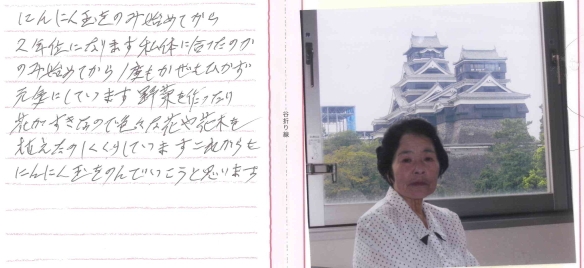 にんにん玉をのみ始めてから
2年位になります私体に合ったのか
のみ始めてから1度もかぜもひかず
元気にしています野菜を作ったり
花がすきなので色々な花や花木を
植えたのしくくらしていますこれからも
にんにん玉をのんでいこうと思います
谷折り線